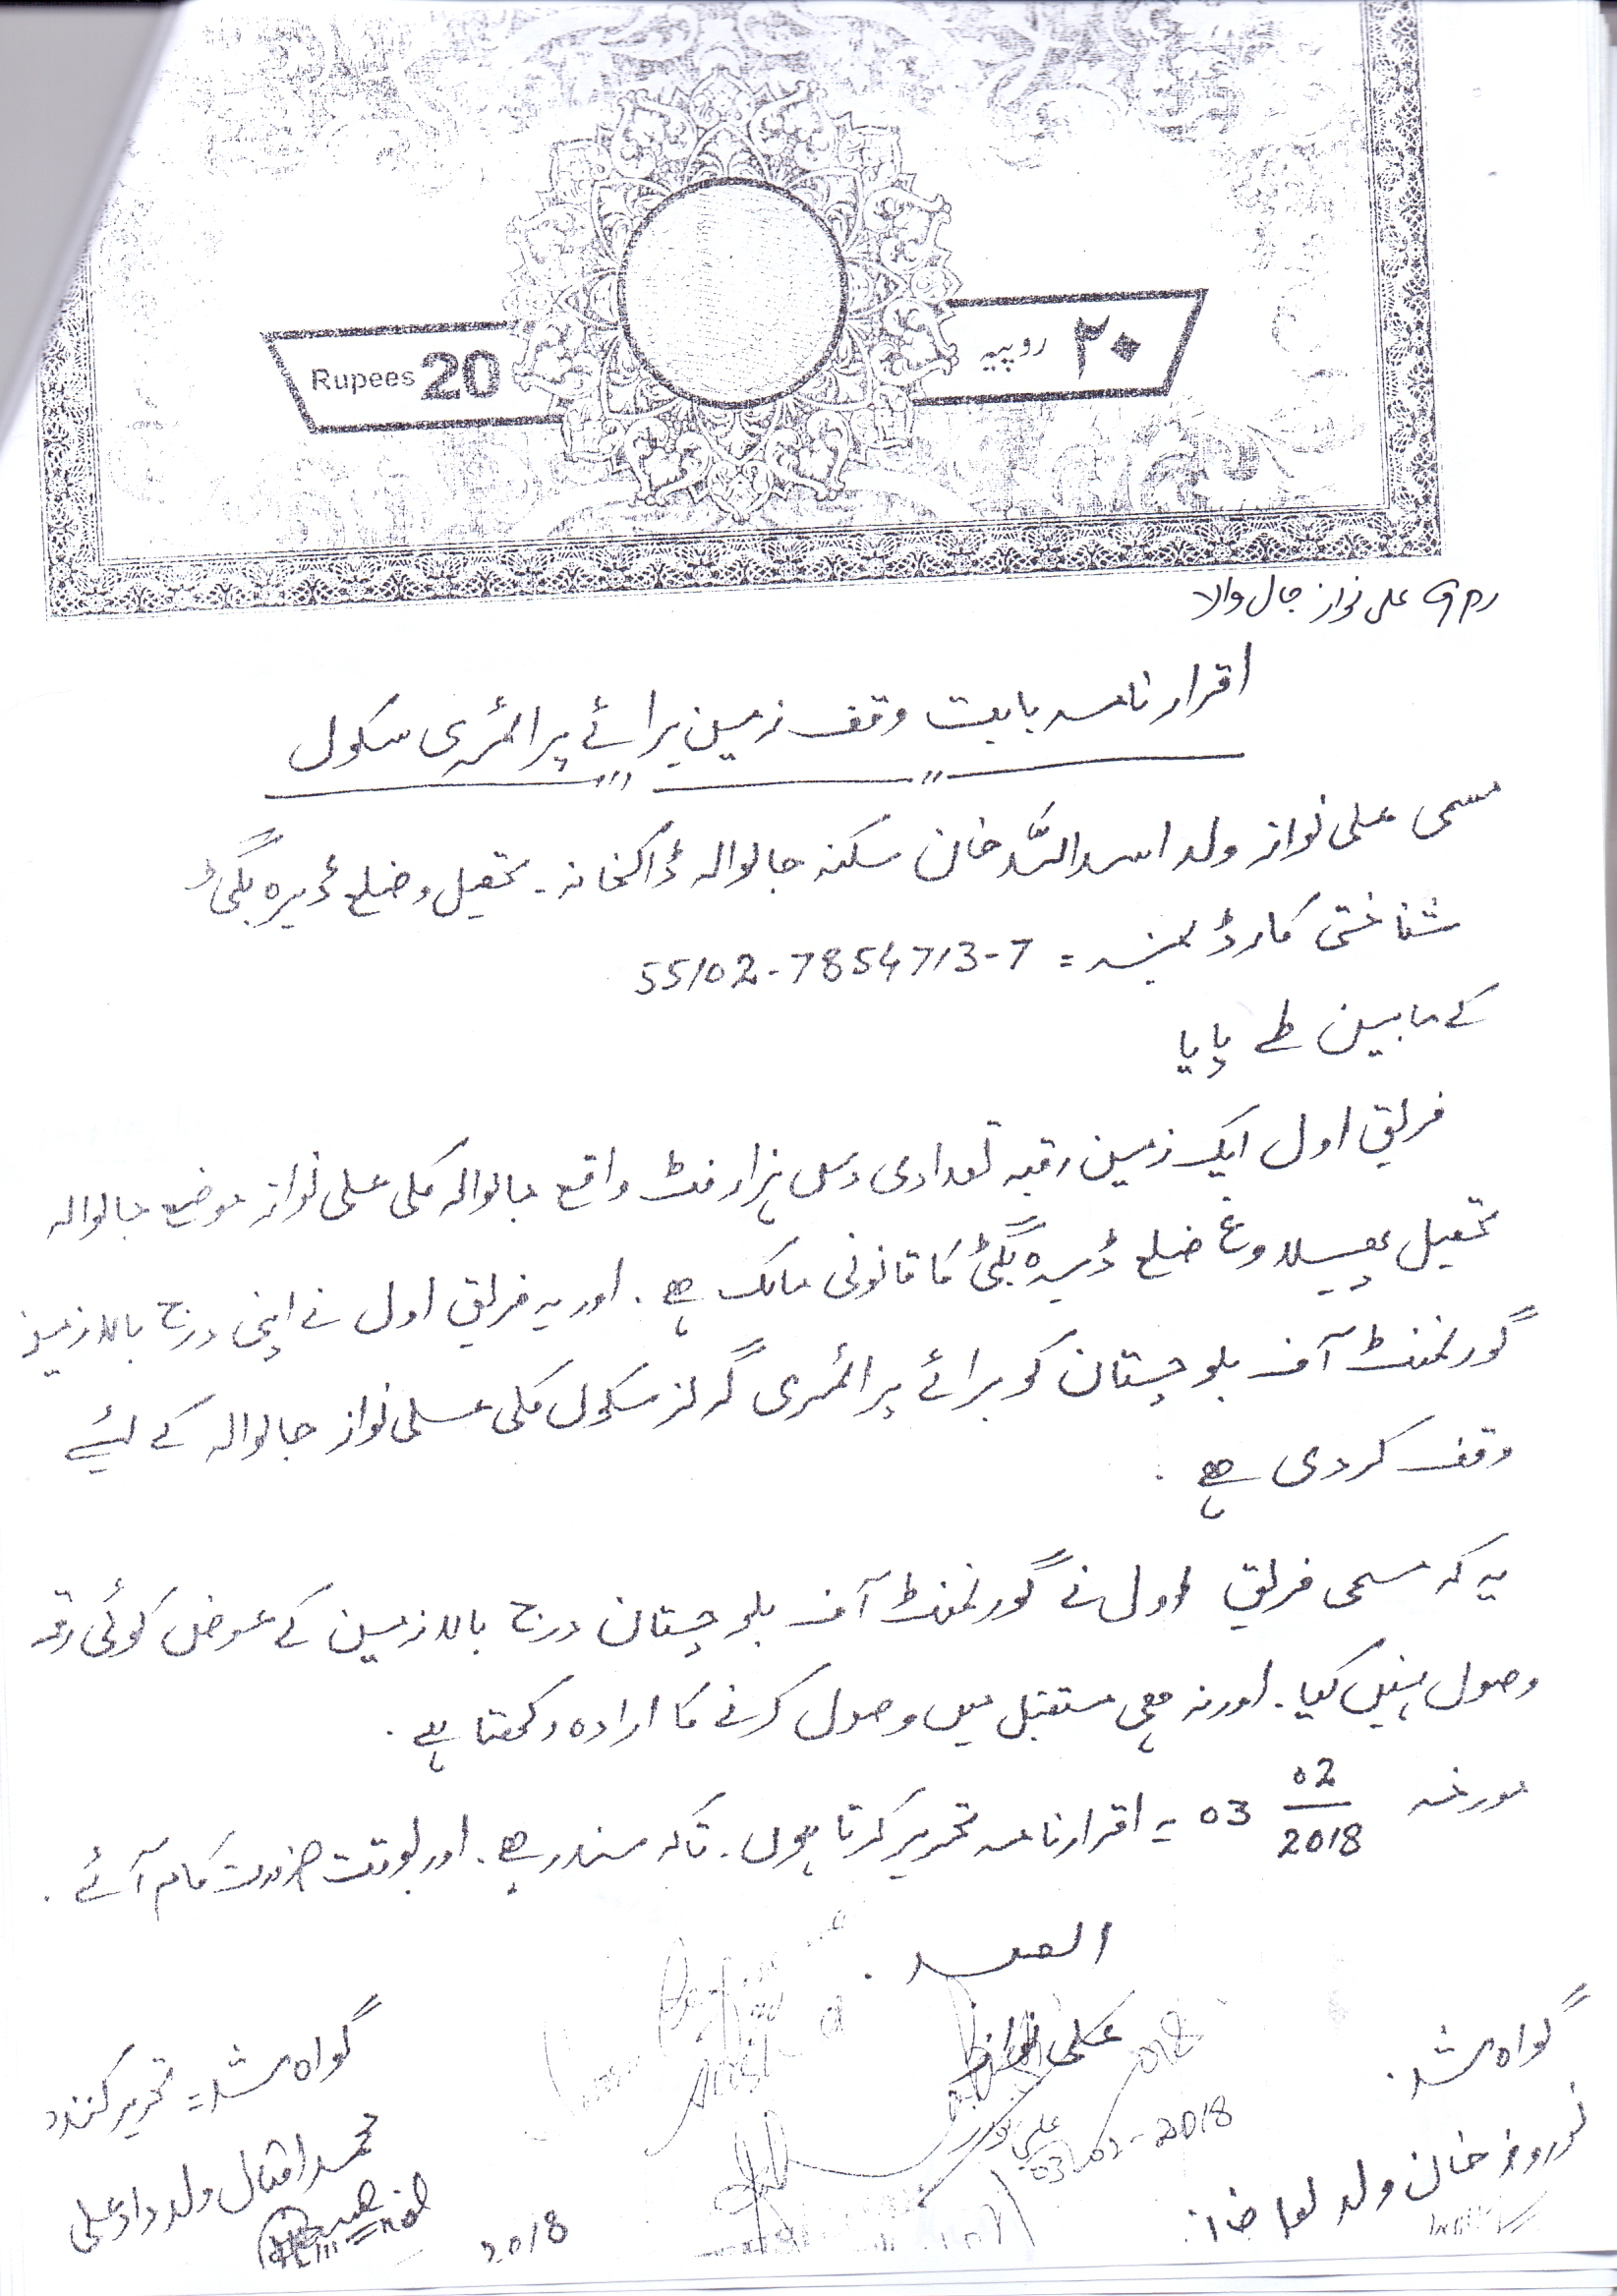 Rupees 20
۲۰ روپیہ
علی نواز جال والا
اقرار نامہ بابت وقف زمین برائے پرائمری سکول
مسمی علی نواز ولد اسد اللہ خان سکنہ جالوالہ ڈاکخانہ۔ تحصیل و ضلع ڈیرہ بگٹی
شناختی کارڈ نمبر = 7-7854713-55102
کے مابین طے پایا
فریق اول ایک زمین رقبہ تعدادی دس ہزار فٹ واقع جالوالہ کلی علی نواز موضع جالوالہ
تحصیل پھیلاوغ ضلع ڈیرہ بگٹی کا قانونی مالک ہے۔ اور یہ فریق اول نے اپنی درج بالا زمین
گورنمنٹ آف بلوچستان کو برائے پرائمری گرلز سکول کلی علی نواز جالوالہ کے لیئے
وقف کر دی ہے۔
یہ کہ مسمی فریق اول نے گورنمنٹ آف بلوچستان درج بالا زمین کے عوض کوئی رقم
وصول نہیں کیا۔ اور نہ ہی مستقبل میں وصول کرنے کا ارادہ رکھتا ہے۔
مورخہ 03 02/2018 یہ اقرار نامہ تحریر کرتا ہوں۔ تاکہ سند رہے۔ اور بوقت ضرورت کام آئے۔
العبد
علی نواز
03-02-2018
گواہ شد
نوروز خان ولد
گواہ شد = تحریر کنندہ
محمد اقبال ولد داد علی
2018